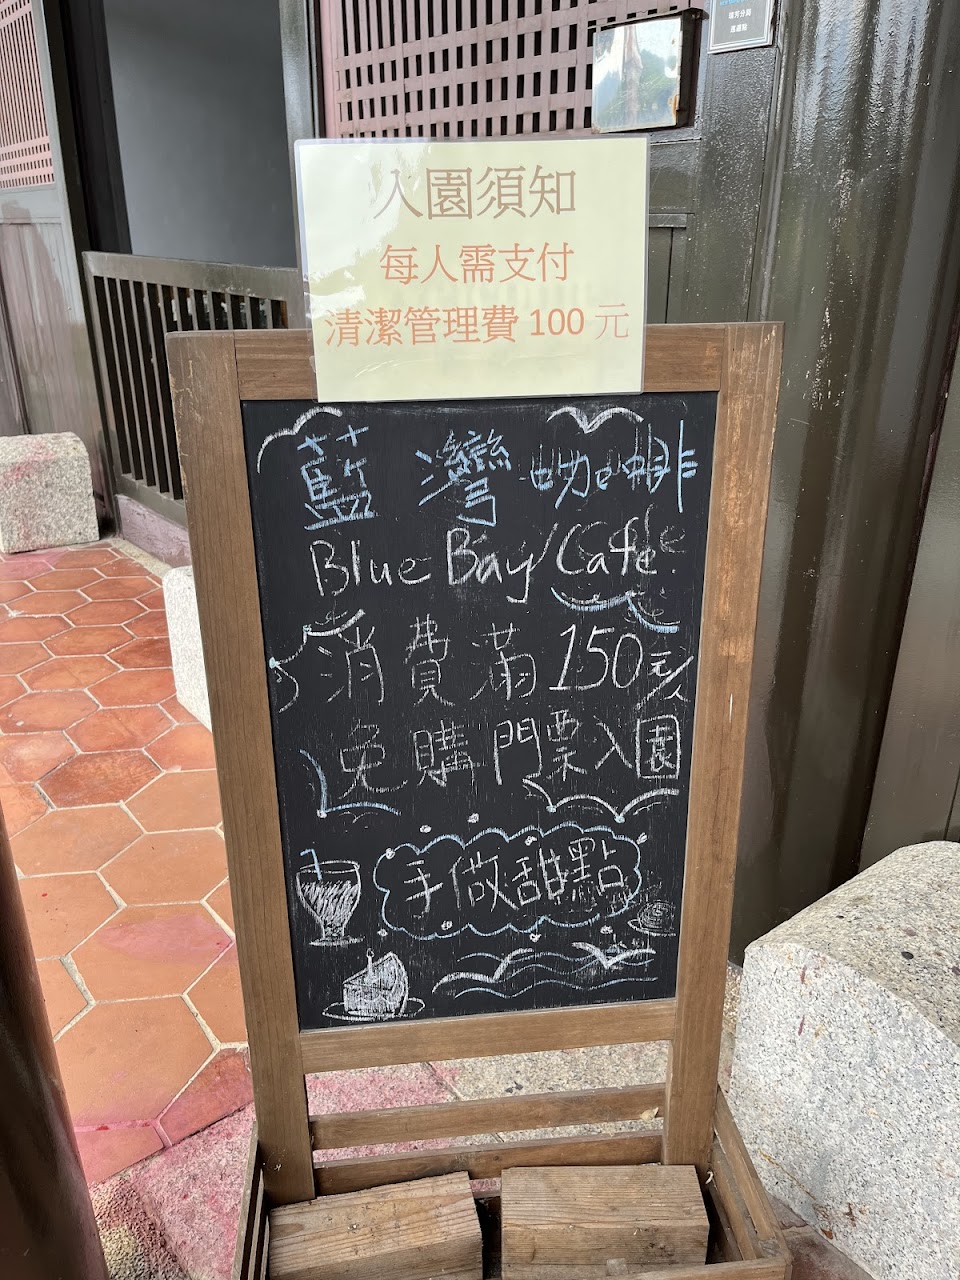 入園須知
每人需支付
清潔管理費 100 元
藍灣咖啡
Blue Bay Cafe
消費滿150元/人
免購門票入園
手做甜點